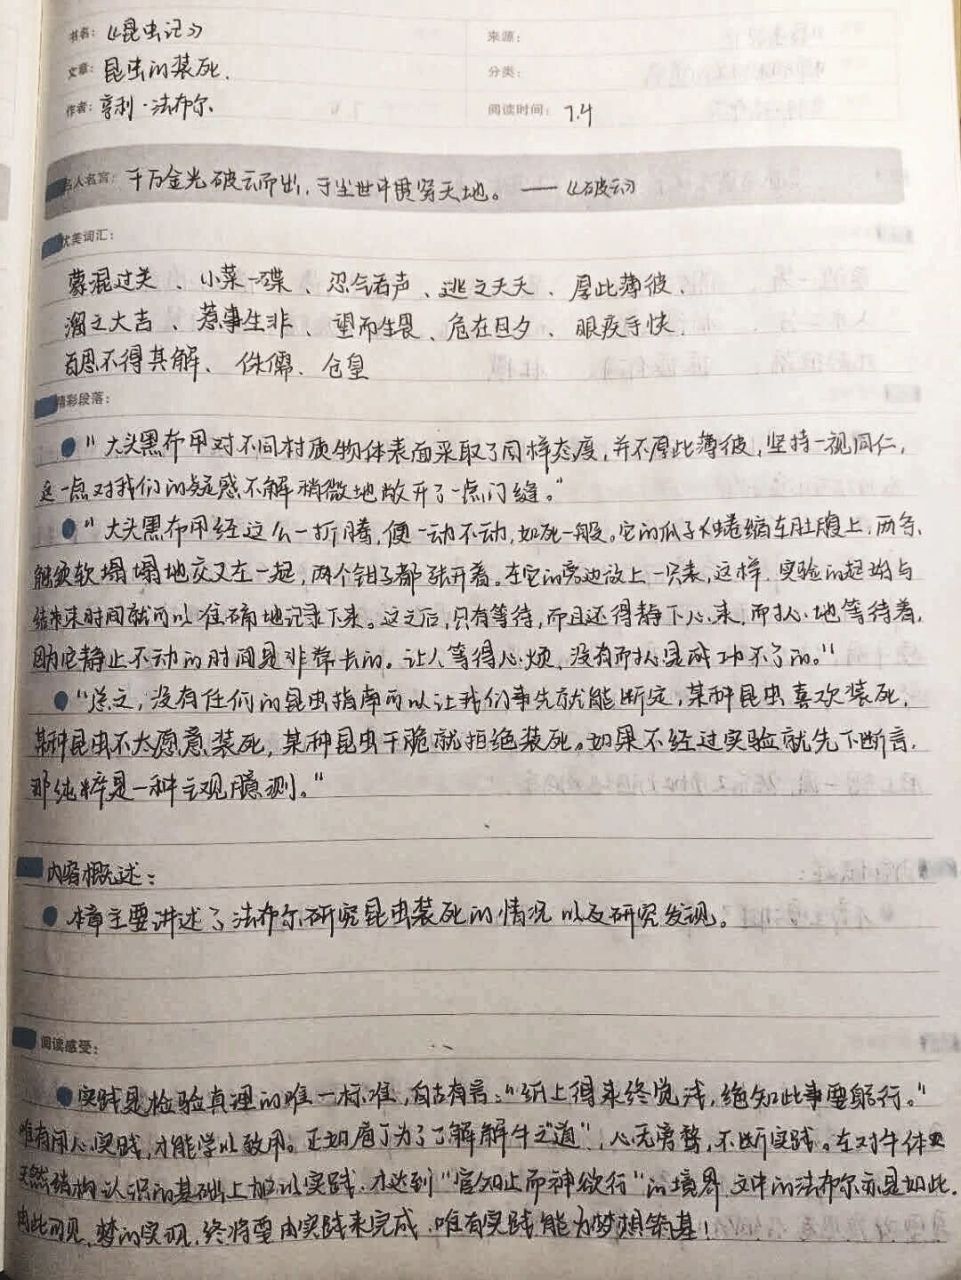 书名：《昆虫记》
来源：
文章：昆虫的装死.
分类：
作者：亨利·法布尔
阅读时间：7.4
名人名言：千万金光破云而出，于尘世中贯穿天地。——《破云》
优美词汇：
蒙混过关、小菜一碟、忍气吞声、逃之夭夭、厚此薄彼、
溜之大吉、惹事生非、望而生畏、危在旦夕、眼疾手快
百思不得其解、侏儒、仓皇
精彩段落：
"大头黑布甲对不同材质物体表面采取了同样态度，并不厚此薄彼，坚持一视同仁，
这一点对我们的疑惑不解稍微地敞开了一点门缝。"
"大头黑布甲经这么一折腾，便一动不动，如死一般。它的爪子蜷缩在肚腹上，两条
触须软塌塌地交叉在一起，两个钳子都张开着。在它的旁边放上一只表，这样，实验的起始与
结束时间就可以准确地记录下来。这之后，只有等待，而且还得静下心来，耐心地等待着，
因为它静止不动的时间是非常长的。让人等得心烦，没有耐心是成功不了的。"
"总之，没有任何的昆虫指南可以让我们事先就能断定，某种昆虫喜欢装死，
某种昆虫不大愿意装死，某种昆虫干脆就拒绝装死。如果不经过实验就先下断言，
那纯粹是一种主观臆测。"
内容概述：
本章主要讲述了法布尔研究昆虫装死的情况以及研究发现。
阅读感受：
实践是检验真理的唯一标准，自古有言："纸上得来终觉浅，绝知此事要躬行。"
唯有用心实践，才能学以致用。正如庖丁为了了解解牛之"道"，心无旁骛，不断实践。在对牛体
天然结构认识的基础上加以实践，才达到"官知止而神欲行"的境界，文中的法布尔亦是如此.
由此可见，梦的实现，终将要由实践来完成，唯有实践能为梦想筑基！